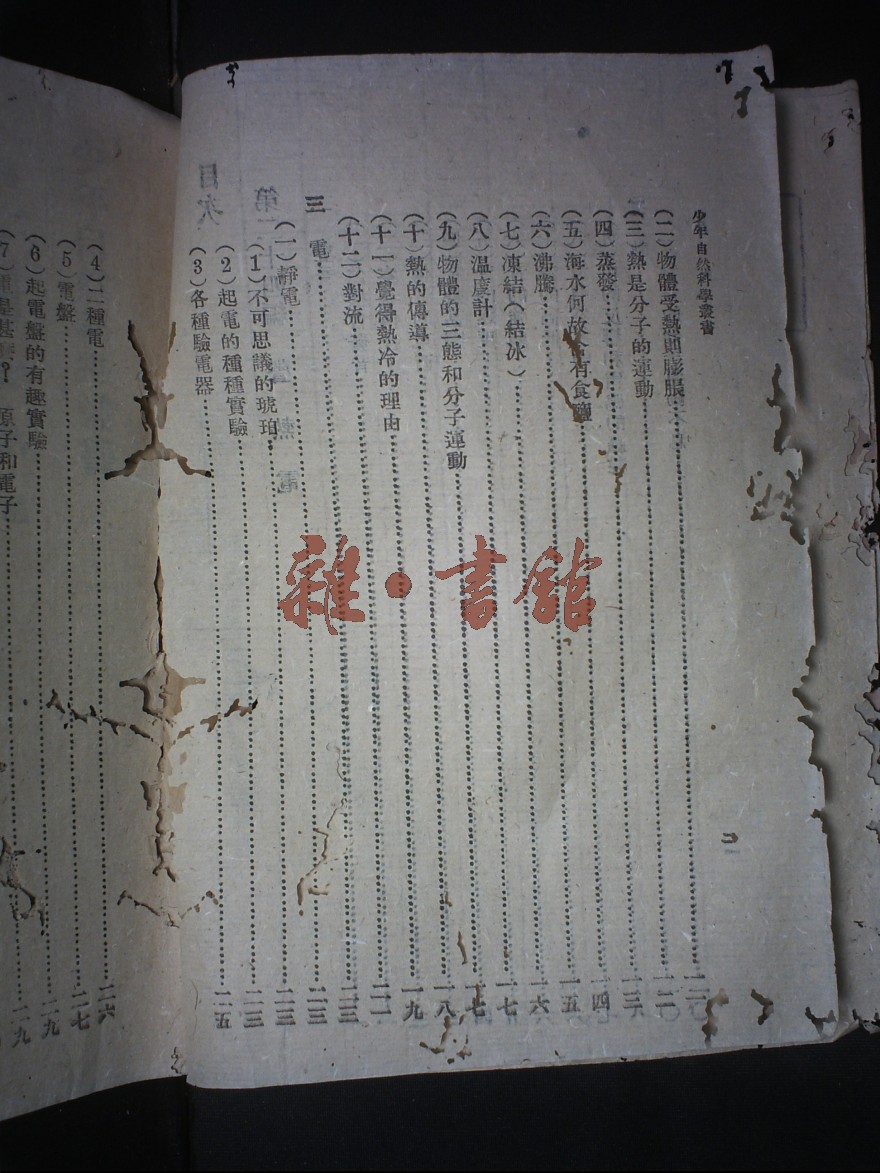 少年自然科學叢書
二
(二)物體受熱則膨脹
(三)熱是分子的運動……一二
(四)蒸發……一三
(五)海水何故含有食鹽……一四
(六)沸騰……一五
(七)凍結(結冰)……一六
(八)溫度計……一七
(九)物體的三態和分子運動……一七
(十)熱的傳導……一八
(十一)覺得熱冷的理由……一九
(十二)對流……二一
三 電……二三
(一)靜電……二三
(1)不可思議的琥珀……二三
(2)起電的種種實驗……二三
(3)各種驗電器……二五
(4)二種電……二六
(5)電盤……二七
(6)起電盤的有趣實驗……二九
(7)電是甚麼? 原子和電子……二九
雜·書館